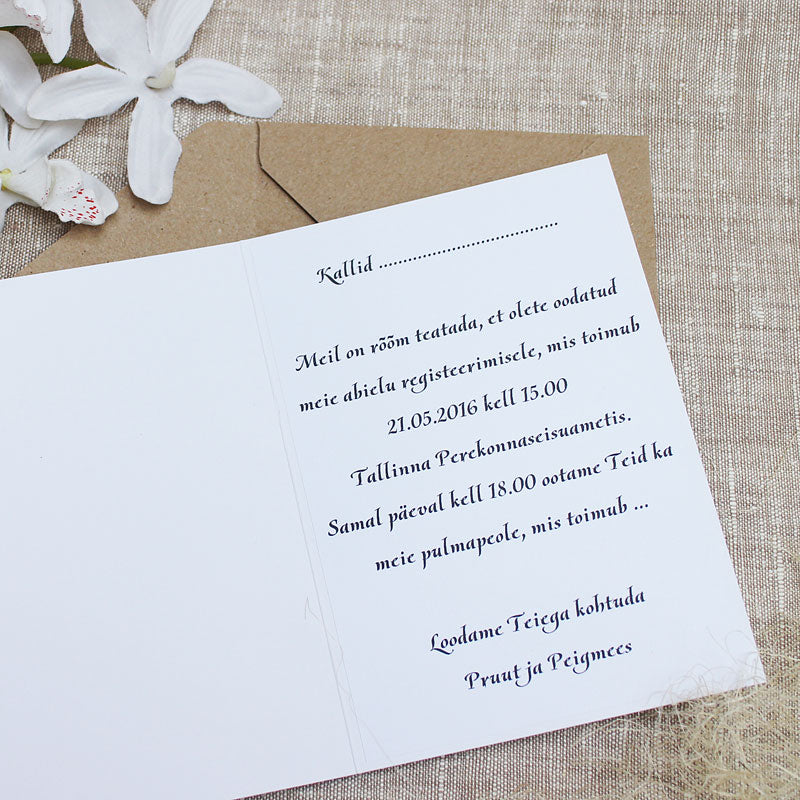 Kallid ......................................
Meil on rõõm teatada, et olete oodatud
meie abielu registeerimisele, mis toimub
21.05.2016 kell 15.00
Tallinna Perekonnaseisuametis.
Samal päeval kell 18.00 ootame Teid ka
meie pulmapeole, mis toimub ...
Loodame Teiega kohtuda
Pruut ja Peigmees